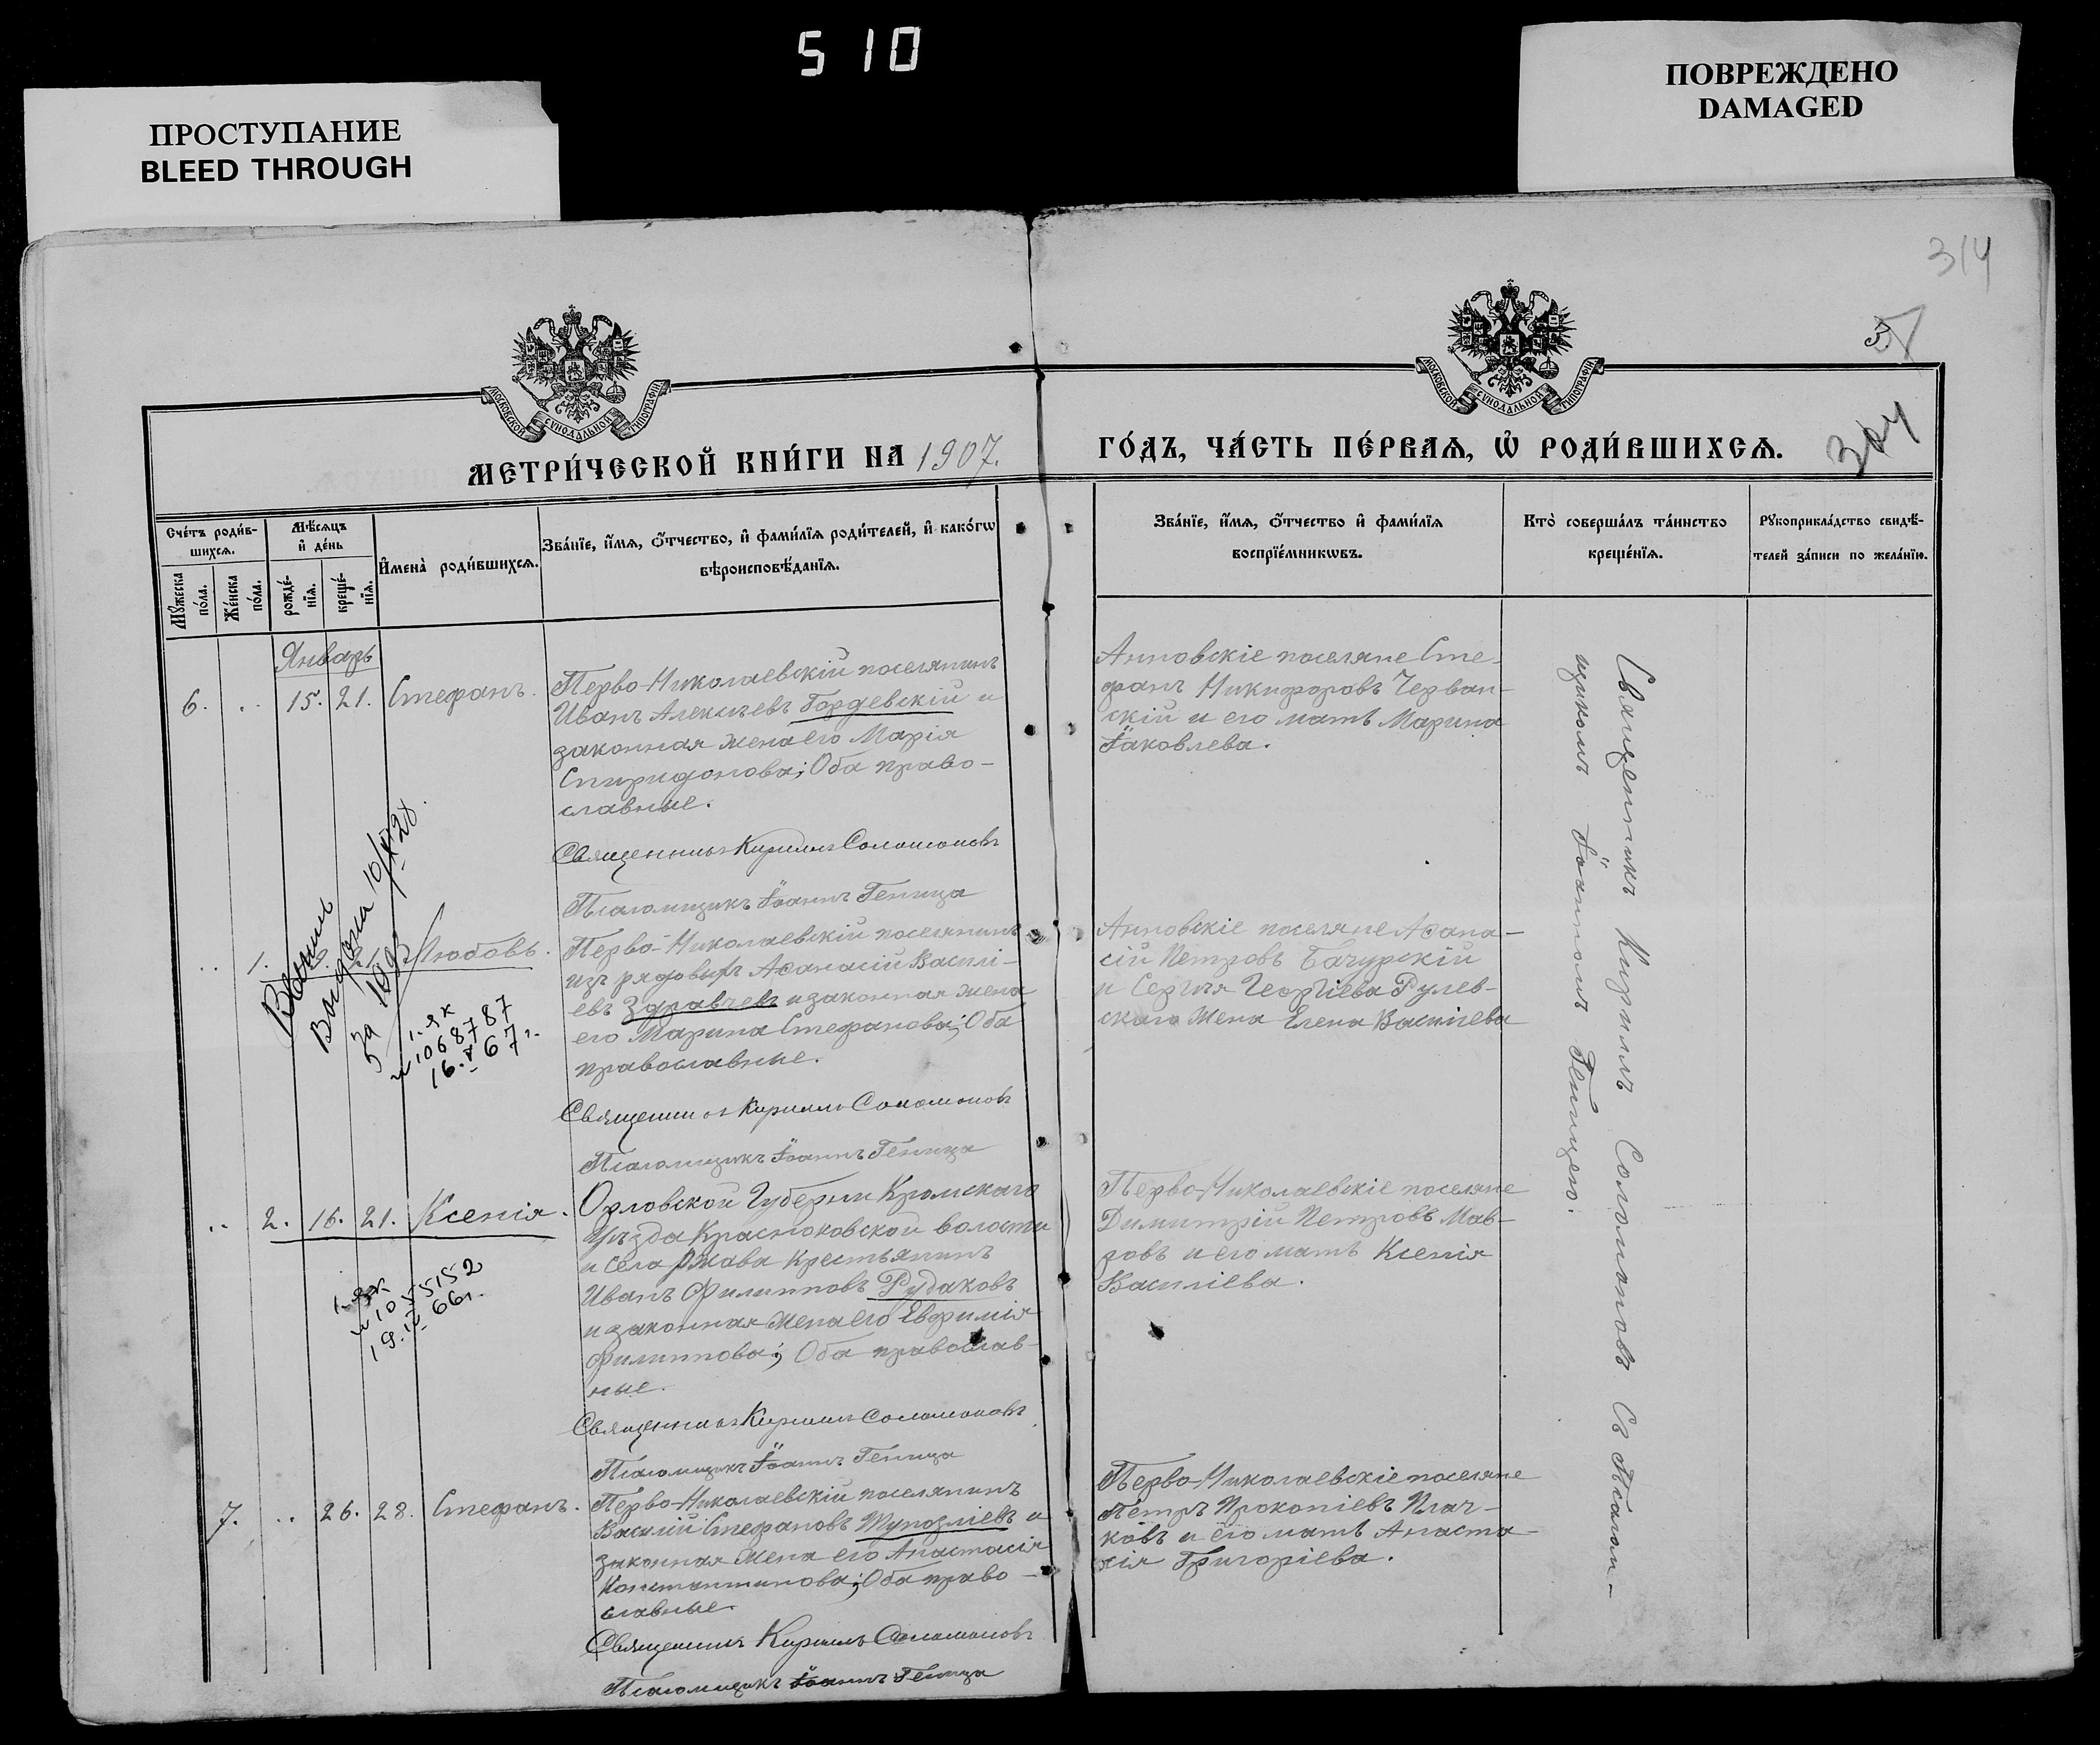 510
ПРОСТУПАНИЕ
BLEED THROUGH
ПОВРЕЖДЕНО
DAMAGED
314
МОСКОВСКОЙ СУНОДАЛЬНОЙ ТИПОГРАФІИ
МОСКОВСКОЙ СУНОДАЛЬНОЙ ТИПОГРАФІИ
МЕТРИ́ЧЕСКОЙ КНИ́ГИ НА 1907.
ГО́ДЪ, ЧА́СТЬ ПЕ́РВАЯ, Ѽ РОДИ́ВШИХСЯ.
Сче́тъ роди́в-
шихсѧ.
Мꙋ́жеска по́ла.
Же́нска по́ла.
Мѣ́сѧцъ
и҆ де́нь
рожде́-
нїѧ.
креще́-
нїѧ.
И҆мена̀ роди́вшихсѧ.
Зва́нїе, и҆́мѧ, ѻ҆́тчество, и҆ фами́лїѧ роди́телей, и҆ како́гѡ
вѣроисповѣ́данїѧ.
Зва́нїе, и҆́мѧ, ѻ҆́тчество и҆ фами́лїѧ
воспрїе́мникѡвъ.
Кто̀ соверша́лъ та́инство
креще́нїѧ.
Рꙋкоприкла́дство свидѣ́-
телей за́писи по жела́нїю.
Январь
6. .. 15. 21. Стефанъ.
Перво-Николаевскій поселянинъ
Иванъ Алексѣевъ Гордевскій и
законная жена его Марія
Спиридонова; Оба право-
славные.
Священникъ Кириллъ Соломоновъ
Псаломщикъ Іоаннъ Геница
Анновскіе поселяне Сте-
фанъ Никифоровъ Черван-
скій и его мать Марина
Іаковлева.
.. 1. Любовь.
за 1093
1068787
16.V 67г.
Перво-Николаевскій поселянинъ
изъ рядовыхъ Аѳанасій Василі-
евъ Здравчевъ и законная жена
его Марина Стефанова; Оба
православные.
Священникъ Кириллъ Соломоновъ
Псаломщикъ Іоаннъ Геница
Анновскіе поселяне Аѳана-
сій Петровъ Бачурскій
и Сергѣя Георгіева Рулев-
скаго жена Елена Василіева
.. 2. 16. 21. Ксенія.
19.IV 66г.
Орловской Губерніи Кромскаго
Уѣзда Краснюковской волости
и села Ржава крестьянинъ
Иванъ Филипповъ Рудаковъ
и законная жена его Евфимія
Филиппова; Оба православ-
ные.
Священникъ Кириллъ Соломоновъ
Псаломщикъ Іоаннъ Геница
Перво-Николаевскіе поселяне
Димитрій Петровъ Мав-
зовъ и его мать Ксенія
Василіева.
7. .. 26. 28. Стефанъ.
Перво-Николаевскій поселянинъ
Василій Стефановъ Тупозліевъ и
законная жена его Анастасія
Константинова; Оба право-
славные.
Священникъ Кириллъ Соломоновъ
Псаломщикъ Іоаннъ Геница
Перво-Николаевскіе поселяне
Петръ Прокопіевъ Плач-
ковъ и его мать Анаста-
сія Григоріева.
Священникъ Кириллъ Соломоновъ съ Псалом-
щикомъ Іоанномъ Геницею.